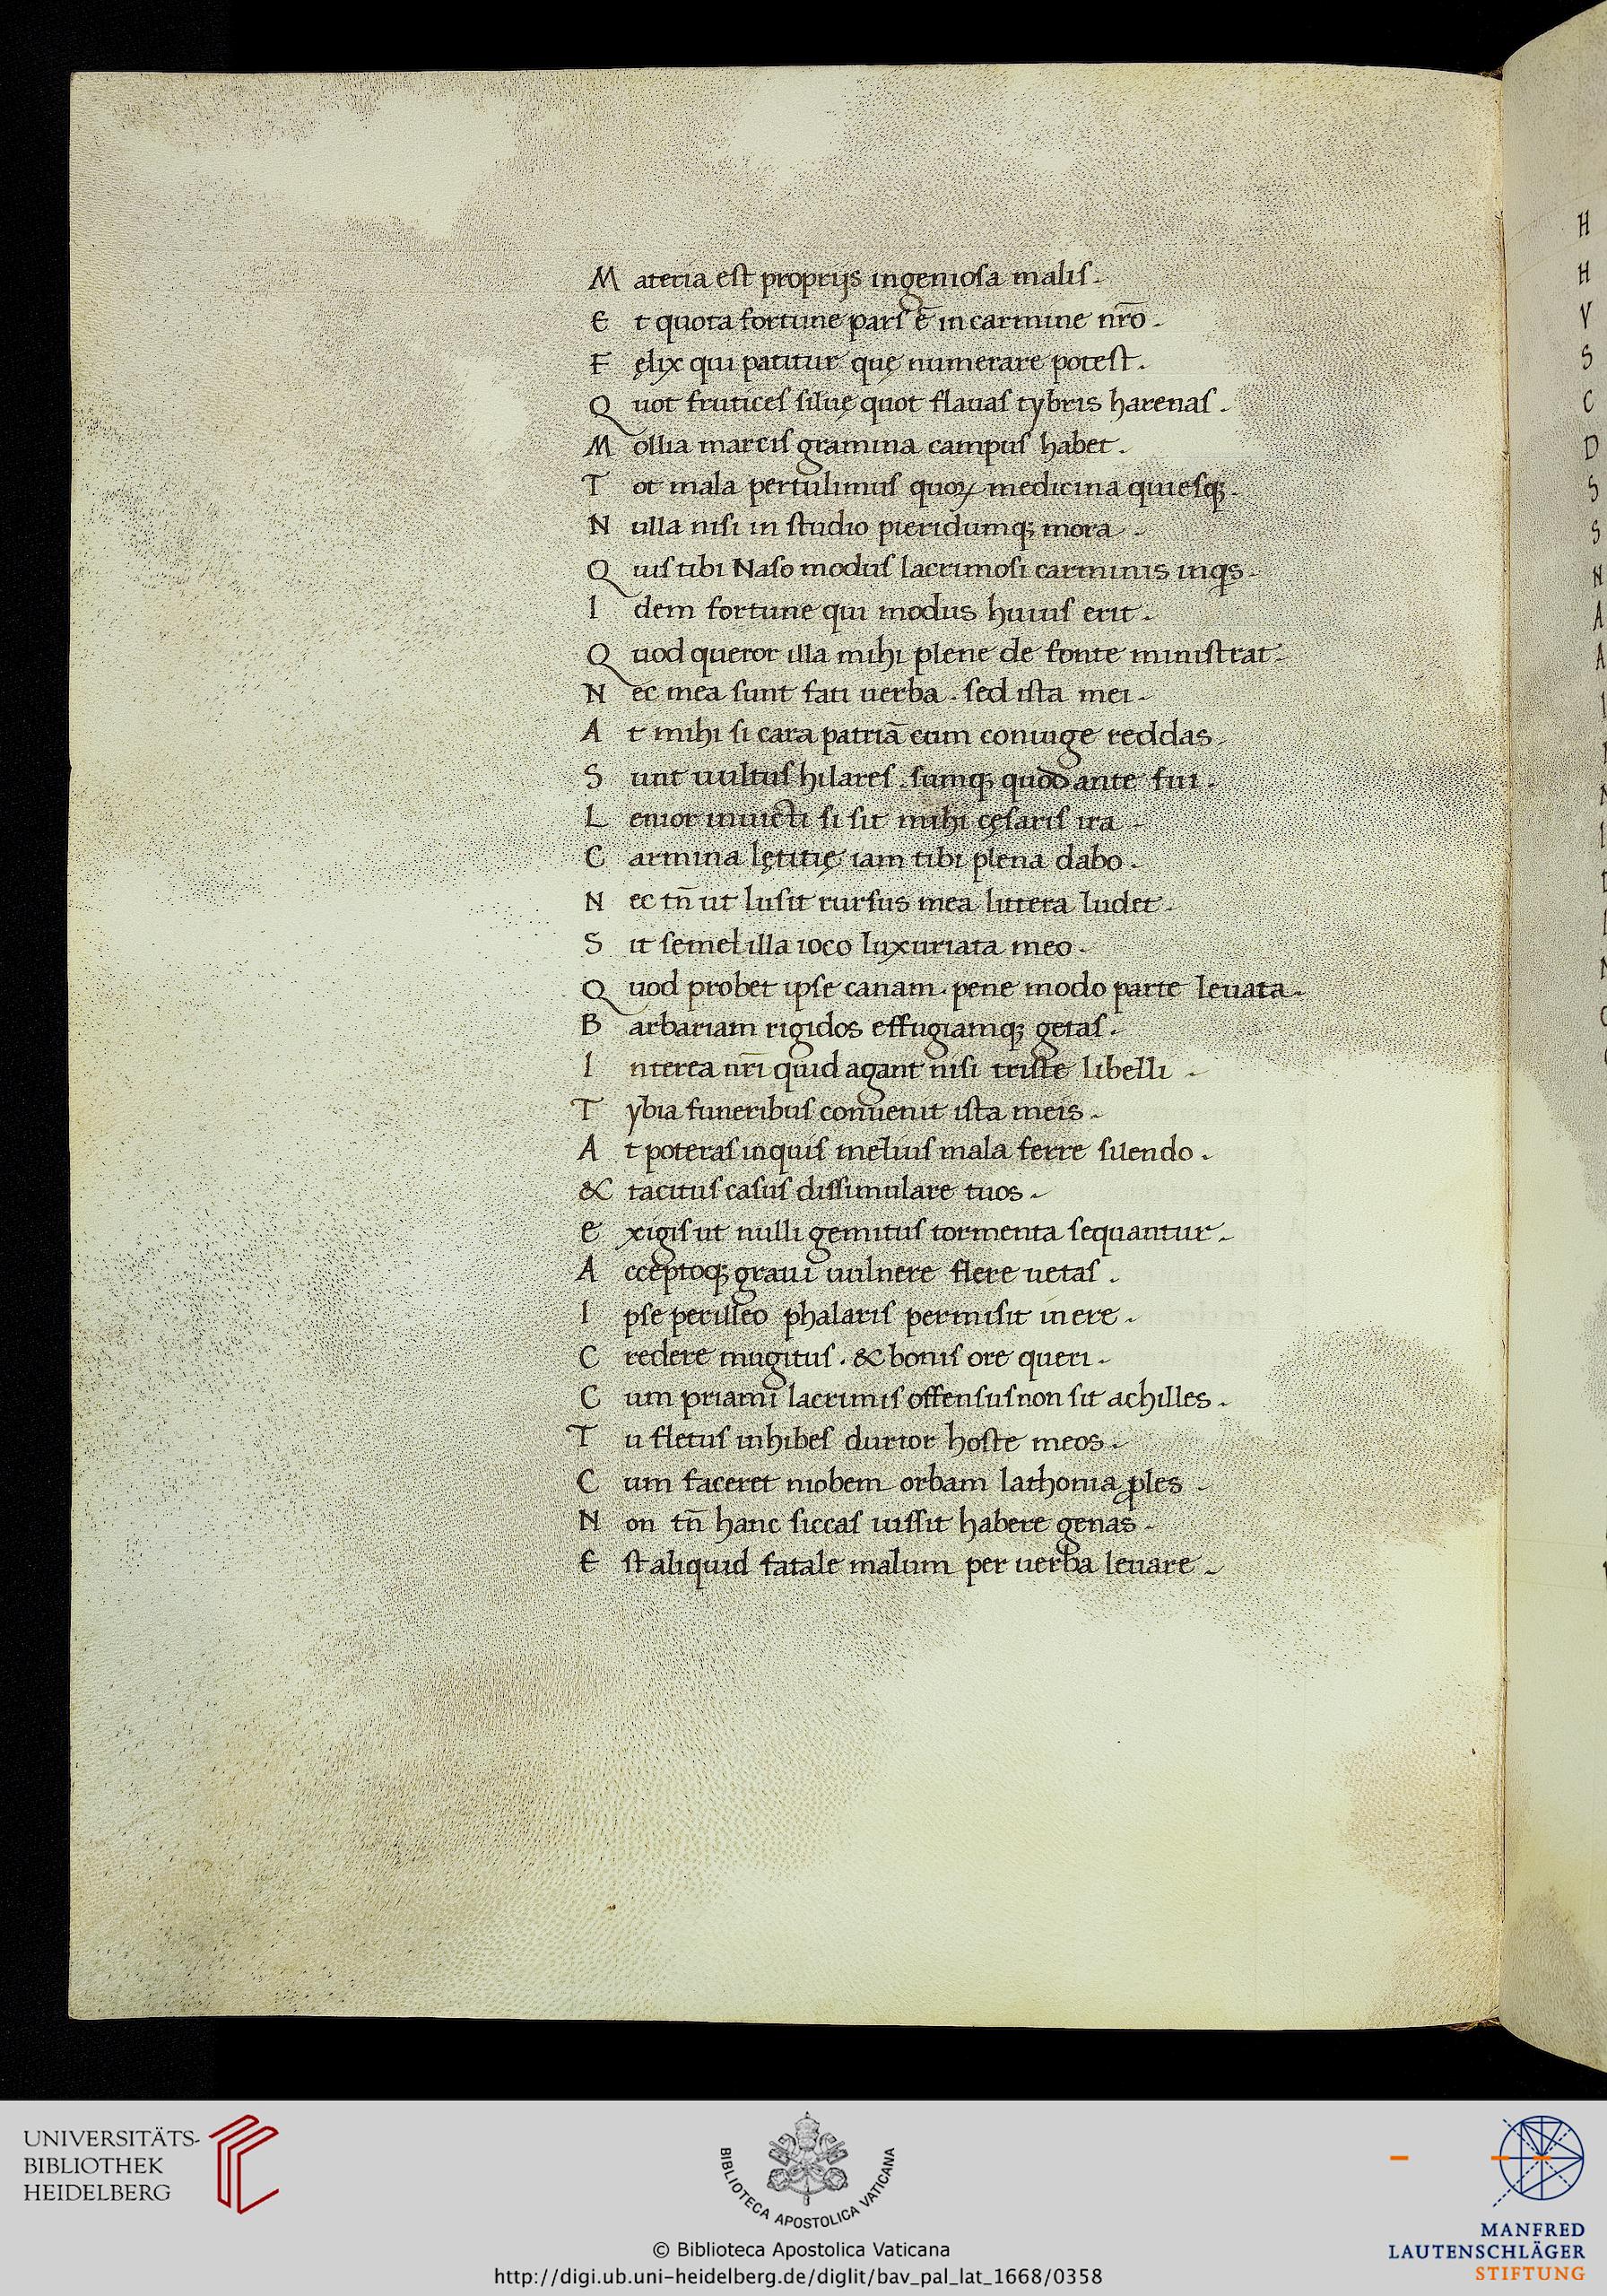 Materia est proprijs ingeniosa malis.
Et quota fortune pars ē in carmine nr̄o.
Fęlix qui patitur quę numerare potest.
Quot frutices siluę quot flauas tybris harenas.
Mollia marcis gramina campus habet.
Tot mala pertulimus quoꝝ medicina quiesqꝫ.
Nulla nisi in studio pieridumqꝫ mora.
Quis tibi Naso modus lacrimosi carminis inqͥs.
Idem fortune qui modus huius erit.
Quod queror illa mihi plene de fonte ministrat.
Nec mea sunt fati uerba. sed ista mei.
At mihi si cara patriā cum coniuge reddas.
Sunt uultus hilares. sumqꝫ quod ante fui.
Lenior inuicti si sit mihi cęsaris ira.
Carmina lętitię iam tibi plena dabo.
Nec tn̄ ut lusit rursus mea littera ludet.
Sit semel illa ioco luxuriata meo.
Quod probet ipse canam. pene modo parte leuata.
Barbariam rigidos effugiamqꝫ getas.
Interea nr̄i quid agant nisi triste libelli.
Tybia funeribus conuenit ista meis.
At poteras inquis melius mala ferre silendo.
& tacitus casus dissimulare tuos.
exigis ut nulli gemitus tormenta sequantur.
Acceptoqꝫ graui uulnere flere uetas.
Ipse perilleo phalaris permisit in ere.
Credere mugitus. & bonis ore queri.
Cum priami lacrimis offensus non sit achilles.
Tu fletus inhibes durior hoste meos.
Cum faceret niobem orbam lathonia ꝓles.
Non tn̄ hanc siccas iussit habere genas.
Est aliquid fatale malum per uerba leuare.
H
H
V
S
C
D
S
S
N
A
A
UNIVERSITÄTS-
BIBLIOTHEK
HEIDELBERG
BIBLIOTECA APOSTOLICA VATICANA
© Biblioteca Apostolica Vaticana
http://digi.ub.uni-heidelberg.de/diglit/bav_pal_lat_1668/0358
MANFRED
LAUTENSCHLÄGER
STIFTUNG